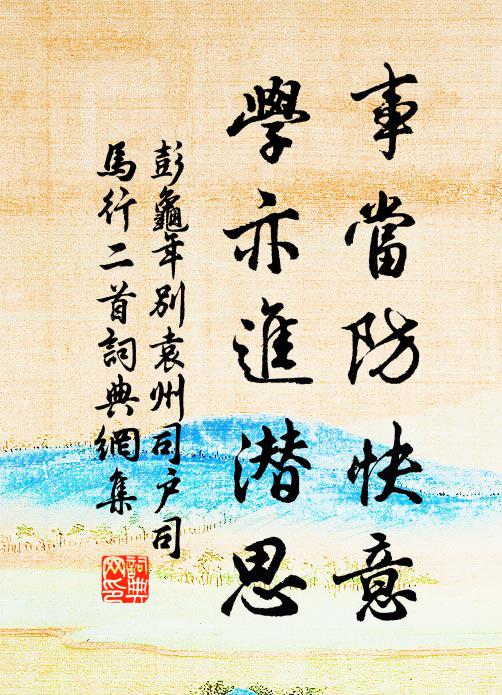 事當防快意
學亦進潛思
彭龜年別袁州司戶司
馬行二首詞典網集
詞典
网印